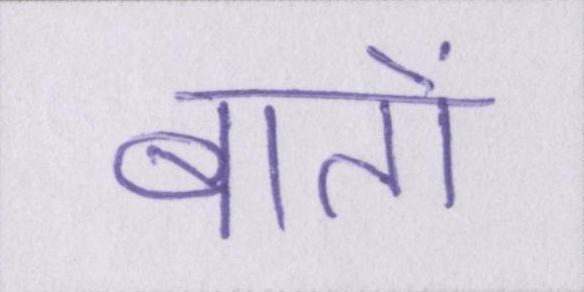 बातों